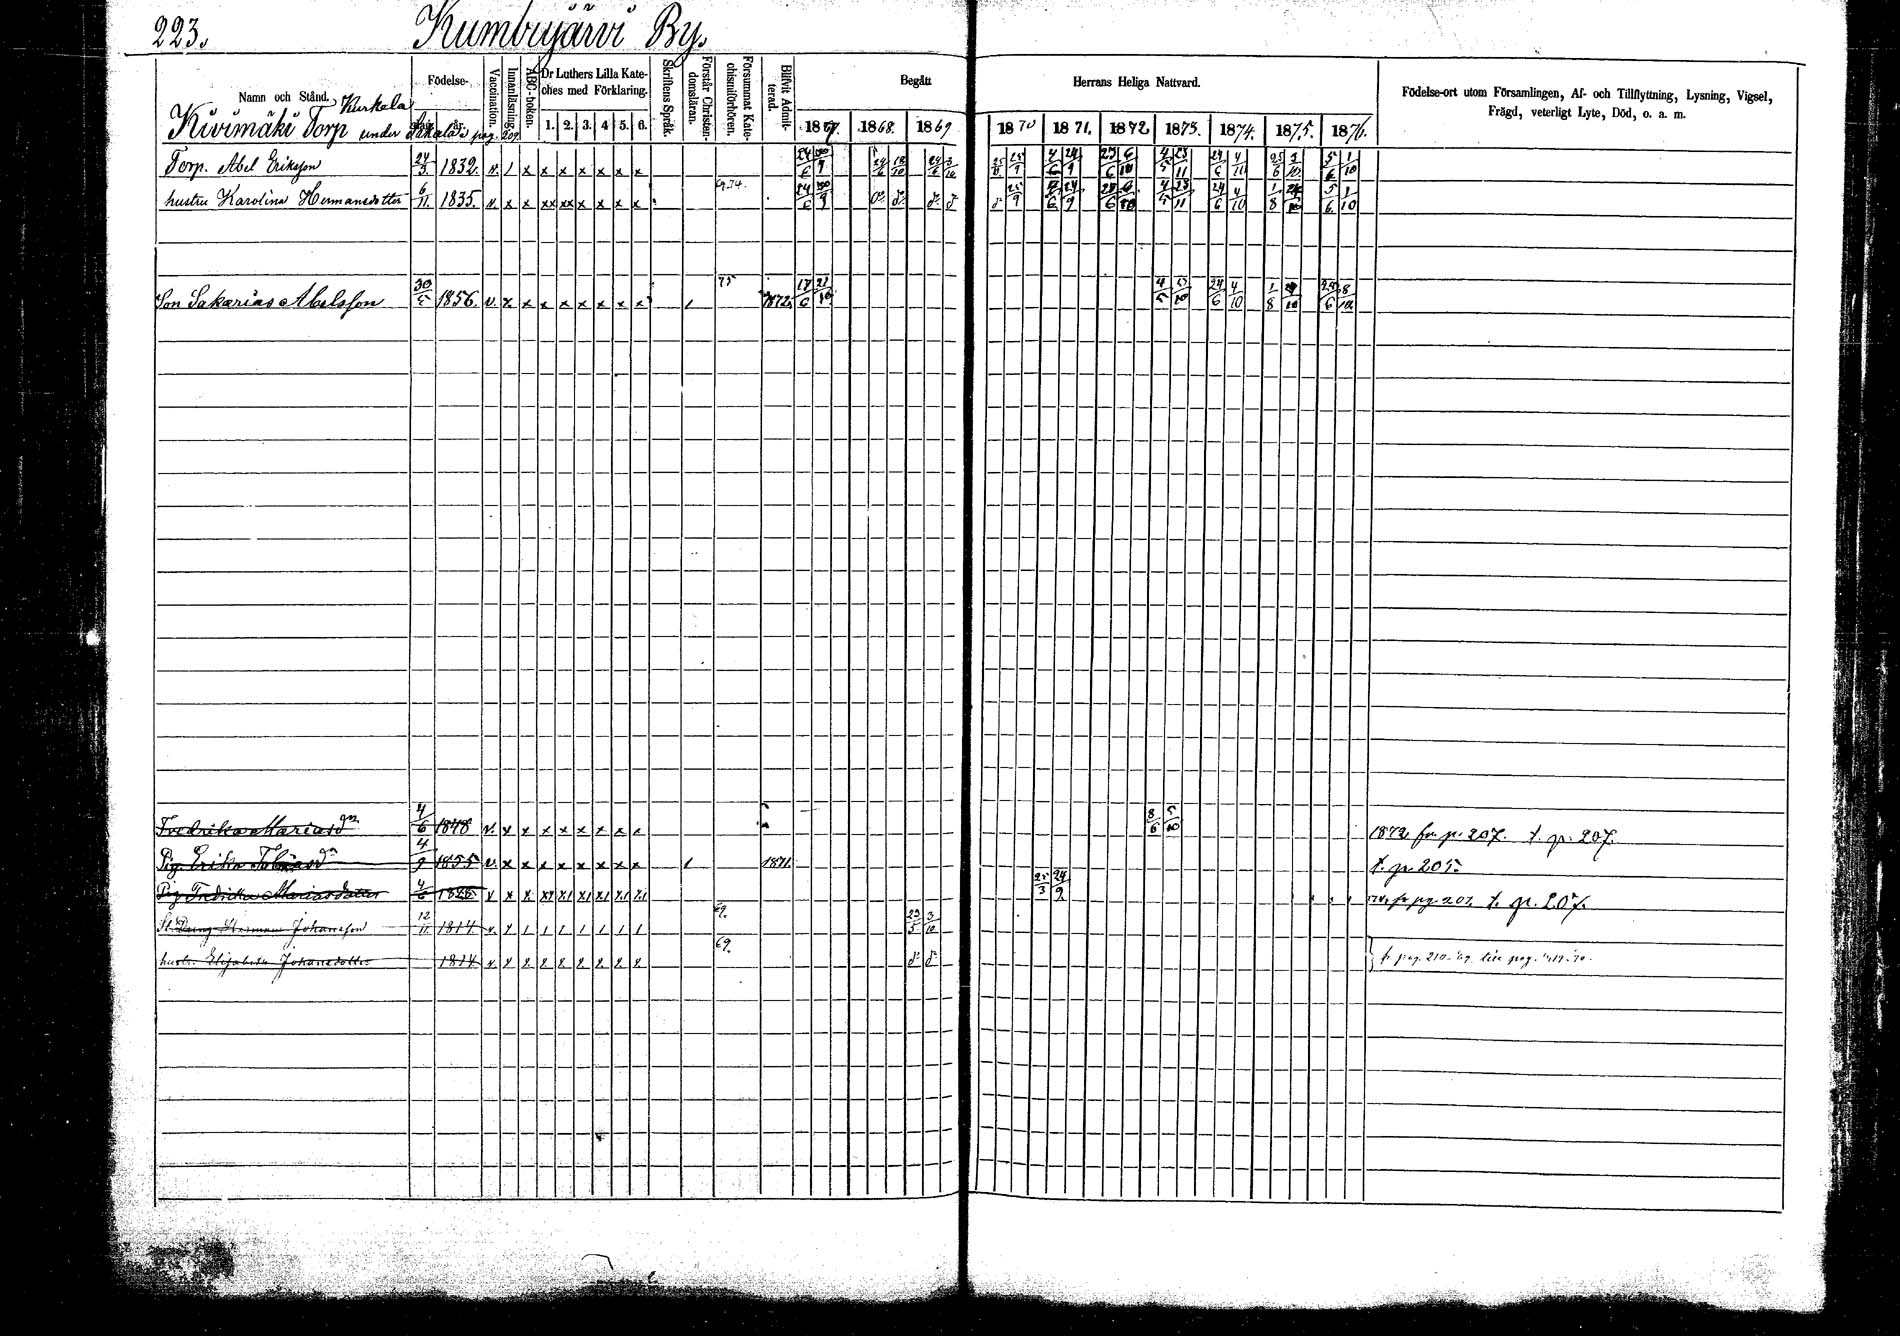 223. Kumbujärvi By.
Namn och Stånd. Födelse- Vaccination. Innanläsning. ABC-boken. Dr Luthers Lilla Kate-ches med Förklaring. Skriftens Språk. Förstår Christen-domsläran. Försummat Kate-chismiförhören. Blifvit Admit-terad. Begått Herrans Heliga Nattvard. Födelse-ort utom Församlingen, Af- och Tillflyttning, Lysning, Vigsel, Frägd, veterligt Lyte, Död, o. a. m.
Kurkela
Kivimäki Torp under pag. 209. 1. 2. 3. 4. 5. 6. 1867. 1868. 1869 1870 1871. 1872 1873. 1874. 1875. 1876.
Torp. Abel Eriksson 24/3 1832. v. / x x x x x x x 24/6 30/9 24/6 18/10 24/6 3/10 25/9 4/6 24/9 23/6 6/10 4/5 23/11 24/6 4/10 25/6 3/10 5/6 1/10
hustru Karolina Hermansdotter 6/11 1835. v. x x xx xx x x x x 69.74. 24/6 30/9 do do do do do 25/9 4/6 24/9 23/6 6/10 4/5 23/11 24/6 4/10 1/8 24/10 5/6 1/10
Son Sakarias Abelsson 30/5 1856. v. x x x x x x x x / 75 1872. 17/6 21/10 4/5 23/10 24/6 4/10 1/8 24/10 25/6 8/10
Fredrika Mariasdr 4/6 1848 v. x x x x x x x x 8/6 5/10 1872 fr. p. 207. t. p. 207.
Pig. Erika Tobiasdr 4/9 1855 v. x x x x x x x x / 1871. t. p. 205.
Pig. Fredrika Mariasdotter 4/6 1848 v x x x1 x1 x1 x1 x1 x1 25/3 24/9 fr pag. 207. t. p. 207.
St. Dreng Herman Johansson 12/11 1814 v. x 1 1 1 1 1 1 1 69. 23/5 3/10
hustr. Elisabeta Johansdotter 1814. v. x x x x x x x x 69. do do fr pag. 210